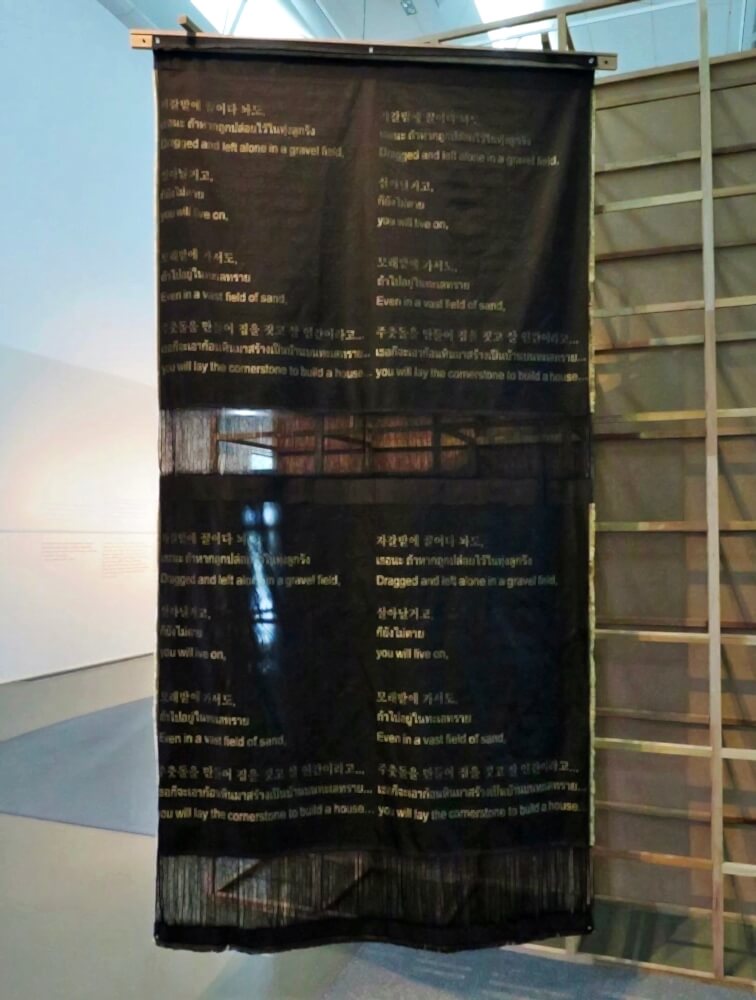 자갈밭에 끌어다 놔도,
เธอนะ ถ้าหากถูกปล่อยไว้ในทุ่งลูกรัง
Dragged and left alone in a gravel field,
살아날거고,
ก็ยังไม่ตาย
you will live on,
모래밭에 가서도,
ถ้าไปอยู่ในทะเลทราย
Even in a vast field of sand,
주춧돌을 만들어 집을 짓고 살 인간이라고...
เธอก็จะเอาก้อนหินมาสร้างเป็นบ้านบนทะเลทราย...
you will lay the cornerstone to build a house...
자갈밭에 끌어다 놔도,
เธอนะ ถ้าหากถูกปล่อยไว้ในทุ่งลูกรัง
Dragged and left alone in a gravel field,
살아날거고,
ก็ยังไม่ตาย
you will live on,
모래밭에 가서도,
ถ้าไปอยู่ในทะเลทราย
Even in a vast field of sand,
주춧돌을 만들어 집을 짓고 살 인간이라고...
เธอก็จะเอาก้อนหินมาสร้างเป็นบ้านบนทะเลทราย...
you will lay the cornerstone to build a house...
자갈밭에 끌어다 놔도,
เธอนะ ถ้าหากถูกปล่อยไว้ในทุ่งลูกรัง
Dragged and left alone in a gravel field,
살아날거고,
ก็ยังไม่ตาย
you will live on,
모래밭에 가서도,
ถ้าไปอยู่ในทะเลทราย
Even in a vast field of sand,
주춧돌을 만들어 집을 짓고 살 인간이라고...
เธอก็จะเอาก้อนหินมาสร้างเป็นบ้านบนทะเลทราย...
you will lay the cornerstone to build a house...
자갈밭에 끌어다 놔도,
เธอนะ ถ้าหากถูกปล่อยไว้ในทุ่งลูกรัง
Dragged and left alone in a gravel field,
살아날거고,
ก็ยังไม่ตาย
you will live on,
모래밭에 가서도,
ถ้าไปอยู่ในทะเลทราย
Even in a vast field of sand,
주춧돌을 만들어 집을 짓고 살 인간이라고...
เธอก็จะเอาก้อนหินมาสร้างเป็นบ้านบนทะเลทราย...
you will lay the cornerstone to build a house...